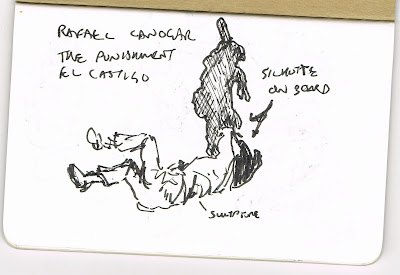 RAFAEL CANOGAR
THE PUNISHMENT
EL CASTIGO
SILHUTTE
ON BOARD